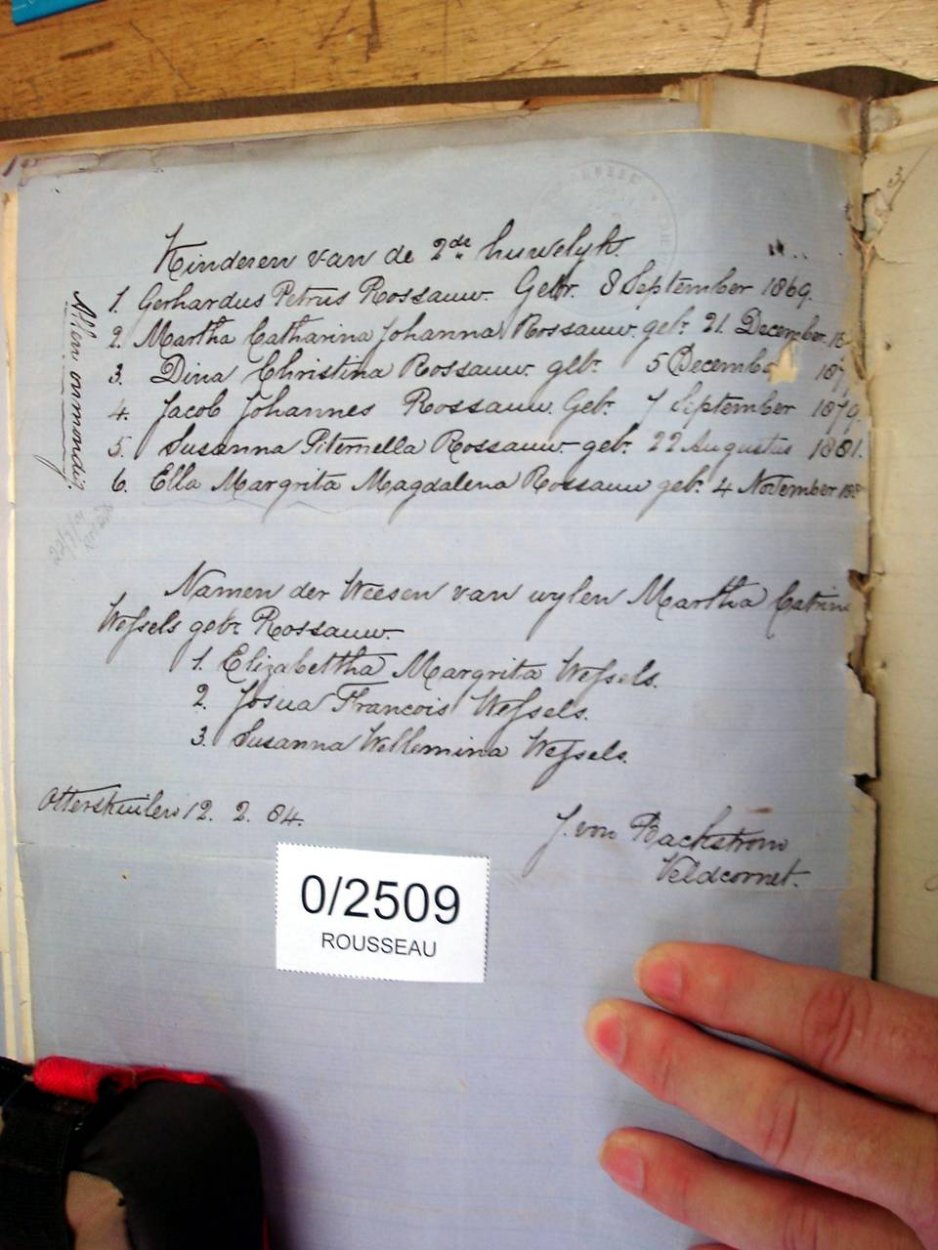 Kinderen van de 2de huwelyk.
1. Gerhardus Petrus Rossauw. Gebr. 8 September 1869.
2. Martha Catharina Johanna Rossauw. gebr. 21. December. 18
3. Dina Christina Rossauw. gebr. 5 Decemb 187
4. Jacob Johannes Rossauw. Gebr. 7 September 1879.
5. Susanna Piternella Rossauw. gebr. 22 Augustus 1881.
6. Ella Margrita Magdalena Rossauw gebr. 4 November 188
Allen onmondig.
Namen der Weesen van wylen Martha Catrina
Wessels gebr. Rossauw.
1. Elizabettha Margrita Wessels.
2. Josua Francois Wessels.
3. Susanna Wellemina Wessels.
Otterskuilen 12. 2. 84.
J. von Backstrom
Veldcornet.
0/2509
ROUSSEAU